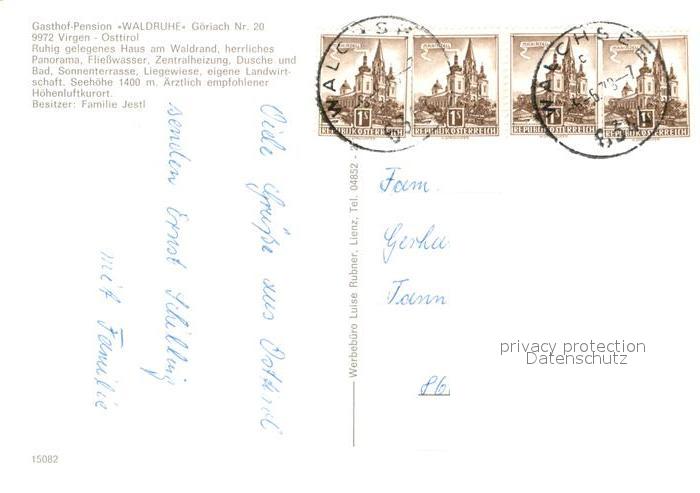 Gasthof-Pension »WALDRUHE« Göriach Nr. 20
9972 Virgen - Osttirol
Ruhig gelegenes Haus am Waldrand, herrliches
Panorama, Fließwasser, Zentralheizung, Dusche und
Bad, Sonnenterrasse, Liegewiese, eigene Landwirt-
schaft. Seehöhe 1400 m. Ärztlich empfohlener
Höhenluftkurort.
Besitzer: Familie Jestl
Viele Grüße aus Osttirol
senden Ernst Schilling
mit Familie
Werbebüro Luise Rubner, Lienz, Tel. 04852 - 2
WALCHSEE
1S 1S 1S 1S
REPUBLIK ÖSTERREICH REPUBLIK ÖSTERREICH REPUBLIK ÖSTERREICH REPUBLIK ÖSTERREICH
WALCHSEE
Fam.
Gerha
Tann
86
privacy protection
Datenschutz
15082